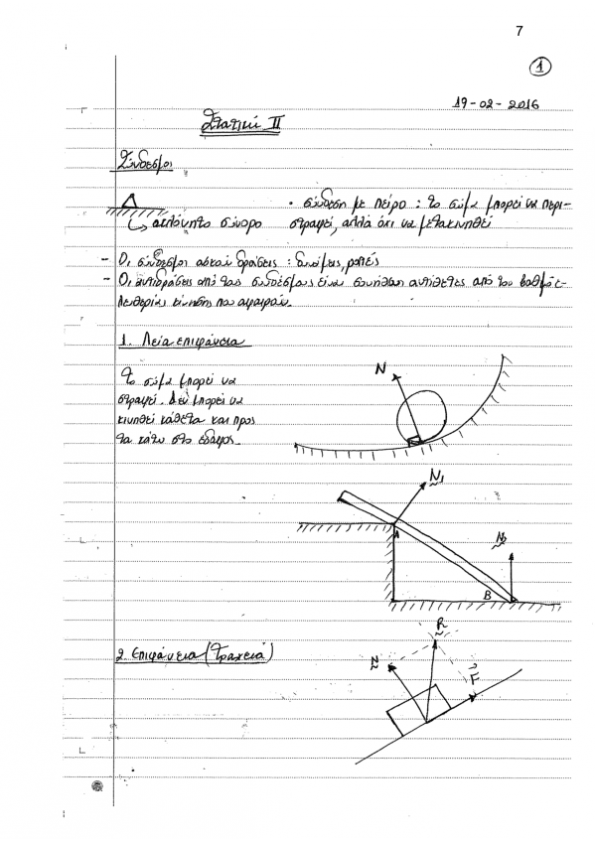 7
1
19-02-2016
Στατική II
Σύνδεσμοι
• σύνδεση με πείρο : το σώμα μπορεί να περι-
ακλόνητο σύνορο στραφεί, αλλά όχι να μετακινηθεί
- Οι σύνδεσμοι ασκούν δράσεις : δυνάμεις, ροπές
- Οι αντιδράσεις από τους συνδέσμους είναι συνήθως αντίθετες από του βαθμούς ε-
λευθερίας κίνησης που αφαιρούν.
1. Λεία επιφάνεια
Το σώμα μπορεί να
στραφεί. Δεν μπορεί να
κινηθεί κάθετα και προς
τα κάτω στο έδαφος.
N
N1
A
N2
B
2. Επιφάνεια (Τραχειά)
R
N
F